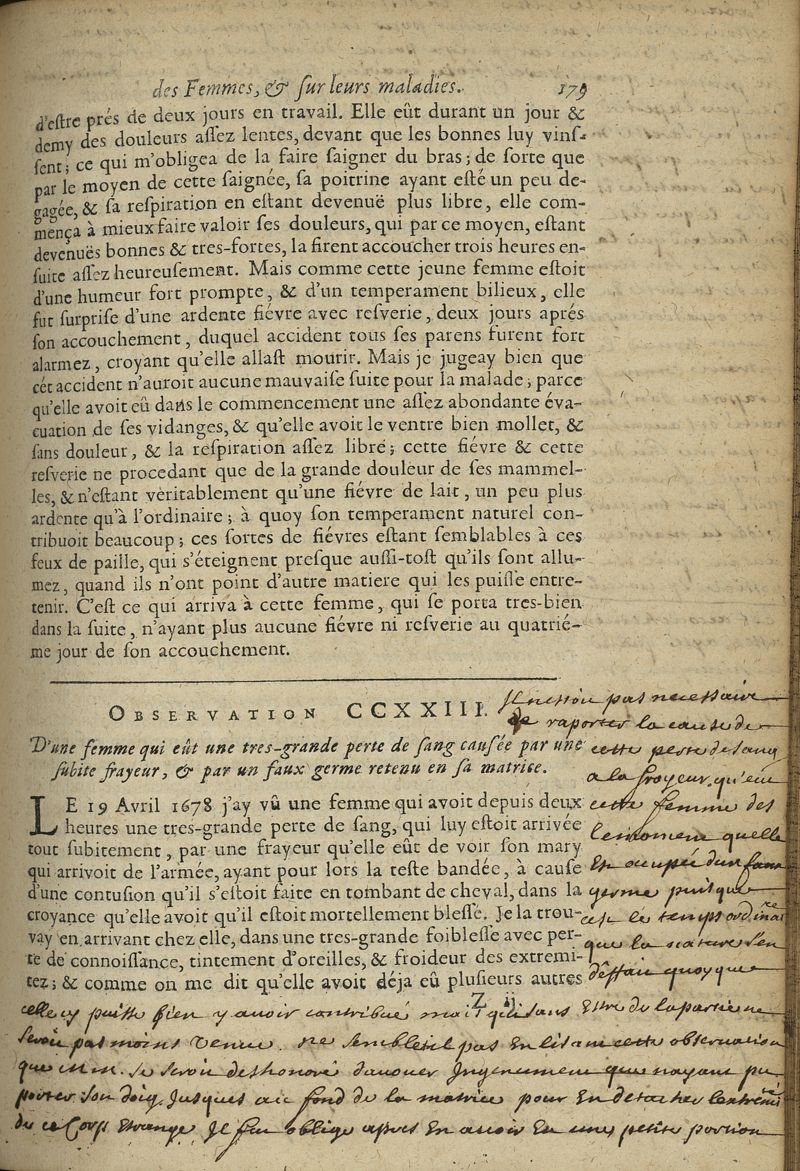 des Femmes, & sur leurs maladies. 179
d'estre prés de deux jours en travail. Elle eût durant un jour &
demy des douleurs assez lentes, devant que les bonnes luy vins-
sent; ce qui m'obligea de la faire saigner du bras; de sorte que
par le moyen de cette saignée, sa poitrine ayant esté un peu de-
gagée, & sa respiration en estant devenuë plus libre, elle com-
mença à mieux faire valoir ses douleurs, qui par ce moyen, estant
devenuës bonnes & tres-fortes, la firent accoucher trois heures en-
suite assez heureusement. Mais comme cette jeune femme estoit
d'une humeur fort prompte, & d'un temperament bilieux, elle
fut surprise d'une ardente fiévre avec resverie, deux jours aprés
son accouchement, duquel accident tous ses parens furent fort
alarmez, croyant qu'elle allast mourir. Mais je jugeay bien que
cét accident n'auroit aucune mauvaise suite pour la malade; parce
qu'elle avoit eû dans le commencement une assez abondante éva-
cuation de ses vidanges, & qu'elle avoit le ventre bien mollet, &
sans douleur, & la respiration assez libre; cette fiévre & cette
resverie ne procedant que de la grande douleur de ses mammel-
les, & n'estant vèritablement qu'une fiévre de lait, un peu plus
ardente qu'à l'ordinaire; à quoy son temperament naturel con-
tribuoit beaucoup; ces sortes de fiévres estant semblables à ces
feux de paille, qui s'éteignent presque aussi-tost qu'ils sont allu-
mez, quand ils n'ont point d'autre matiere qui les puisse entre-
tenir. C'est ce qui arriva à cette femme, qui se porta tres-bien
dans la suite, n'ayant plus aucune fiévre ni resverie au quatrié-
me jour de son accouchement.
OBSERVATION CCXXIII.
D'une femme qui eût une tres-grande perte de sang causée par une
subite frayeur, & par un faux germe retenu en sa matrice.
LE 19 Avril 1678 j'ay vû une femme qui avoit depuis deux
heures une tres-grande perte de sang, qui luy estoit arrivée
tout subitement, par une frayeur qu'elle eût de voir son mary
qui arrivoit de l'armée, ayant pour lors la teste bandée, à cause
d'une contusion qu'il s'estoit faite en tombant de cheval, dans la
croyance qu'elle avoit qu'il estoit mortellement blessé. Je la trou-
vay en arrivant chez elle, dans une tres-grande foiblesse avec per-
te de connoissance, tintement d'oreilles, & froideur des extremi-
tez; & comme on me dit qu'elle avoit déja eû plusieurs autres
pas necessaire
raporter la cause de
cette perte de sang
a la frayeur qu'eut
cette femme des
germe puisque
quoyque
celle cy puisse bien y avoir contribué
pas moins venue. ne semble til pas en lisant cette observation
que
porter son doig jusques au fond de la matrice pour en detacher
ce corps etrange je fus obligé apres en avoir une petite portion